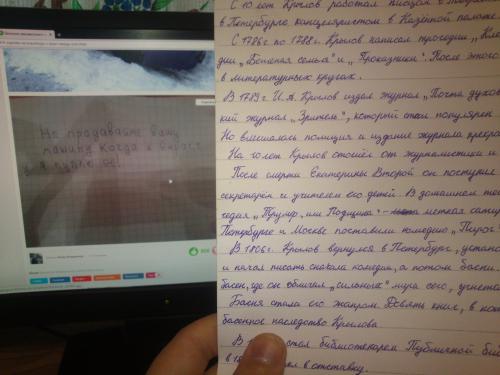 Не продавайте вашу
машину когда я вырасту
я куплю её!
С 10 лет Крылов работал писцом в
в Петербурге канцеляристом в Казённой палате
С 1786 г по 1788 г. Крылов написал трагедии
дии „Бешеная семья" и „Проказники". После этого
в литературных кругах.
В 1789 г И. А. Крылов издал журнал „Почта духов
кий журнал „Зритель", который стал популярен
Но вмешалась полиция и издание журнала прекра
На 10 лет Крылов отошёл от журналистики и
После смерти Екатерины Второй он поступил
секретарём и учителем его детей. В домашнем теа
гедия „Трумф, или Подщипа" - меткая сатир
Петербурге и Москве поставили комедию „Пирог"
В 1806 г. Крылов вернулся в Петербург, установ
и начал писать сначала комедии, а потом басни.
басен, где он обличал „сильных" мира сего, угнета
Басня стала его жанром. Девять книг, в кот
басенное наследство Крылова
В стал библиотекарем Публичной биб
в отставку.